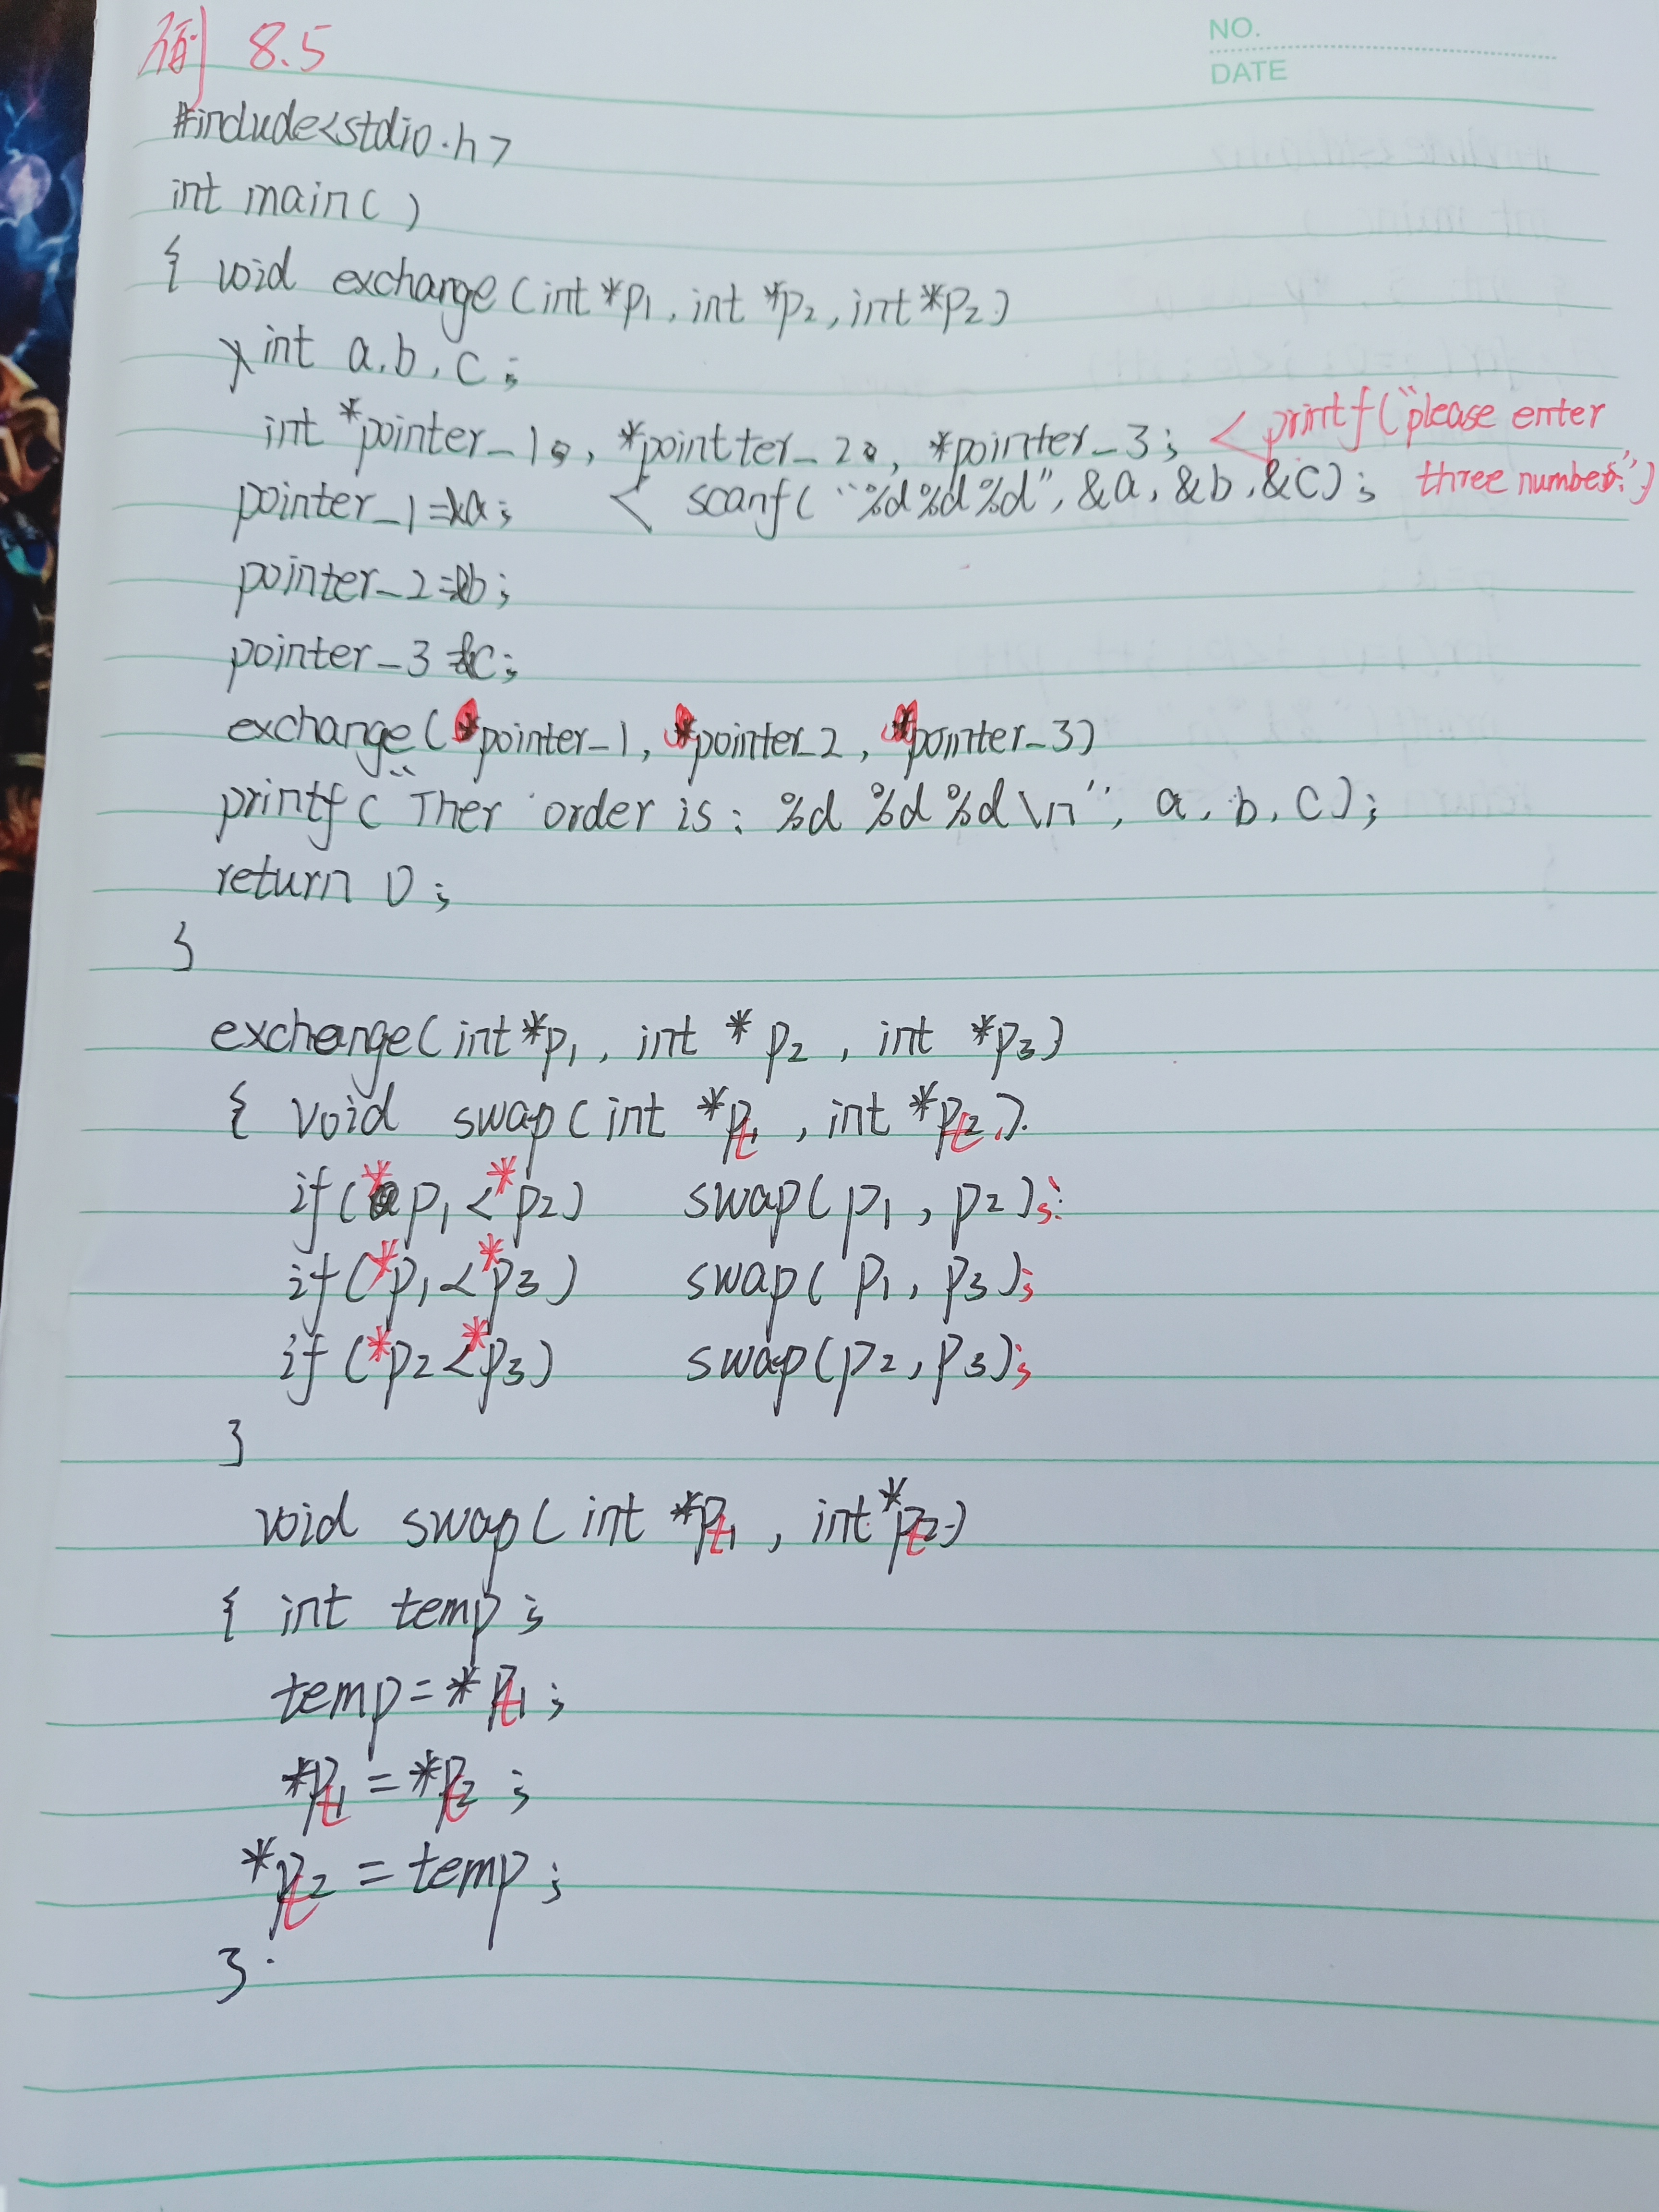 例 8.5
NO.
DATE
#include<stdio.h>
int main()
{ void exchange(int *p1, int *p2, int *p2)
int a, b, c;
int *pointer_1, *pointter_2, *pointer_3; < printf("please enter
three number:")
pointer_1=&a; < scanf("%d%d%d", &a, &b, &c);
pointer_2=&b;
pointer_3=&c;
exchange(pointer_1, pointer_2, pointer_3)
printf("Ther order is: %d %d %d\n", a, b, c);
return 0;
}
exchange(int *p1, int *p2, int *p3)
{ void swap(int *pt1, int *pt2)
if(*p1<*p2) swap(p1, p2);
if(*p1<*p3) swap(p1, p3);
if(*p2<*p3) swap(p2, p3);
}
void swap(int *pt1, int *pt2)
{ int temp;
temp=*pt1;
*pt1=*pt2;
*pt2=temp;
}